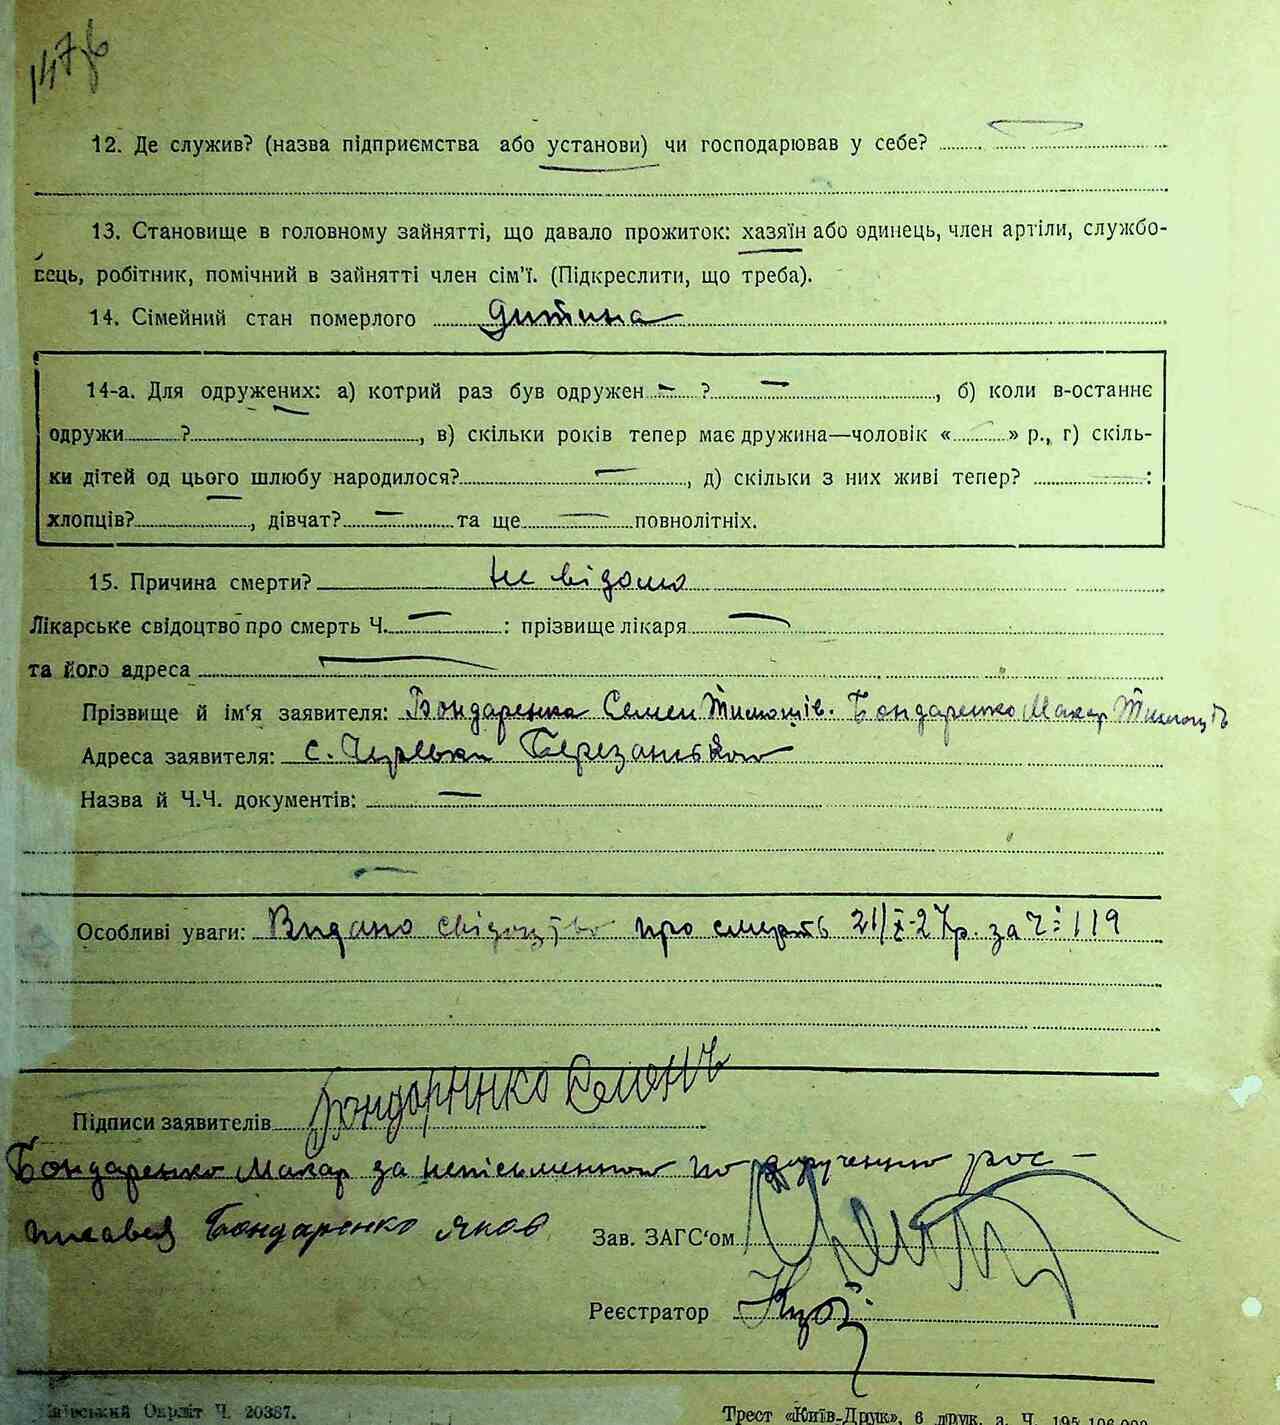 12. Де служив? (назва підприємства або установи) чи господарював у себе?
13. Становище в головному зайнятті, що давало прожиток: хазяїн або одинець, член артіли, службо-
вець, робітник, помічний в зайнятті член сім'ї. (Підкреслити, що треба).
14. Сімейний стан померлого дитина
14-а. Для одружених: а) котрий раз був одружен — ? —, б) коли в-останнє
одружи ? , в) скільки років тепер має дружина—чоловік « » р., г) скіль-
ки дітей од цього шлюбу народилося? —, д) скільки з них живі тепер? — :
хлопців? —, дівчат? — та ще — повнолітніх.
15. Причина смерти? Не відомо
Лікарське свідоцтво про смерть Ч. — : прізвище лікаря —
та його адреса —
Прізвище й ім'я заявителя: Бондаренко Семен Тимошів. Бондаренко Макар
Адреса заявителя: с.
Назва й Ч.Ч. документів: —
Особливі уваги: Видано свідоцтво про смерть 21/X-27р. за Ч: 119
Підписи заявителів Бондаринко Семенъ
Бондаренко Макар за неписьменного по дорученню рос-
писався Бондаренко Яков
Зав. ЗАГС'ом
Реєстратор
Київський Окрліт Ч. 20387.
Трест «Київ-Друк», 6 друк. з. Ч. 195